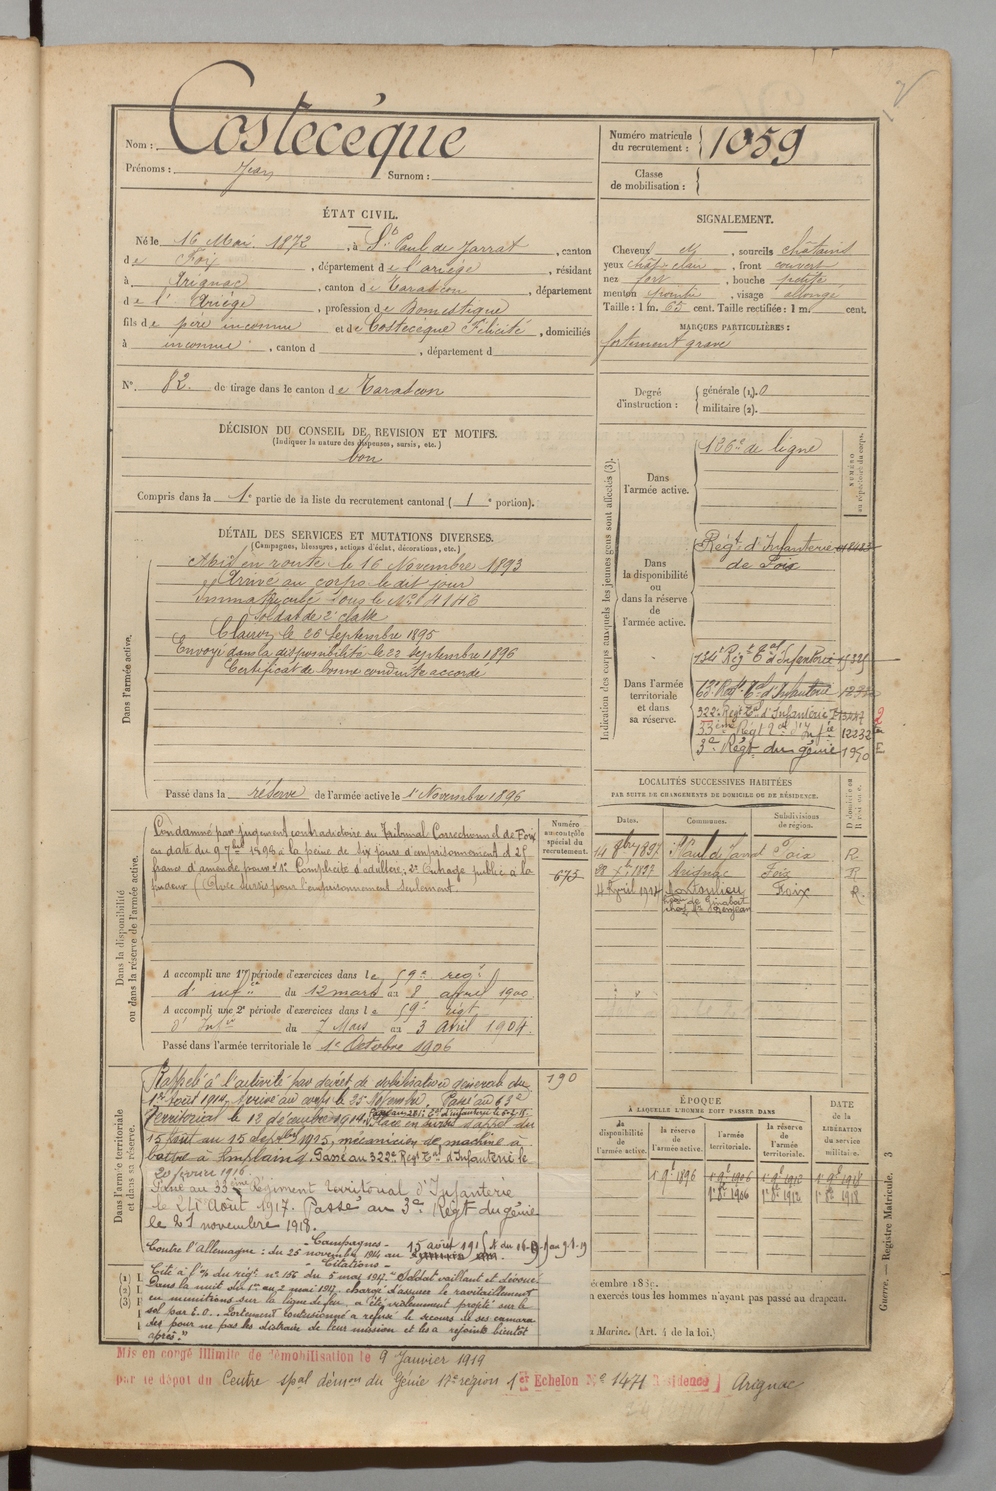 Nom : Costecèque
Prénoms : Jean Surnom :
Numéro matricule du recrutement : 1059
Classe de mobilisation :
ÉTAT CIVIL.
Né le 16 Mai 1872, à St Paul de Jarrat, canton
de Foix, département de l'ariège, résidant
à Arignac, canton de Tarascon, département
de l'Ariège, profession de Domestique
fils de père inconnu et de Costecèque Félicité, domiciliés
à inconnue, canton d , département d
N° 82 de tirage dans le canton de Tarascon
SIGNALEMENT.
Cheveux , sourcils châtains
yeux chât. clair, front couvert
nez fort, bouche petite
menton , visage allongé
Taille : 1 m. 65 cent. Taille rectifiée : 1 m. cent.
MARQUES PARTICULIÈRES :
fortement gravé
Degré d'instruction : générale (1). 0
militaire (2).
DÉCISION DU CONSEIL DE REVISION ET MOTIFS.
(Indiquer la nature des dispenses, sursis, etc.)
bon
Compris dans la 1e partie de la liste du recrutement cantonal (1e portion).
DÉTAIL DES SERVICES ET MUTATIONS DIVERSES.
(Campagnes, blessures, actions d'éclat, décorations, etc.)
Dans l'armée active.
Mis en route le 16 Novembre 1893
Arrivé au corps le dit jour
Immatriculé sous le N° 4146
soldat de 2e classe
Clairon le 26 Septembre 1895
Envoyé dans la disponibilité le 22 septembre 1896
Certificat de bonne conduite accordé
Passé dans la réserve de l'armée active le 1r Novembre 1896
Indication des corps auxquels les jeunes gens sont affectés (3).
NUMÉRO au répertoire du corps.
Dans l'armée active.
126e de ligne
Dans la disponibilité ou dans la réserve de l'armée active.
Regt d'Infanterie
de Foix
Dans l'armée territoriale et dans sa réserve.
134e Regt Tal d'Infanterie
63e Regt Tal d'Infanterie
322e Regt Tal d'Infanterie
33ème Régt Tal d'Infie 12232
3e Régt du génie 1950
LOCALITÉS SUCCESSIVES HABITÉES
PAR SUITE DE CHANGEMENTS DE DOMICILE OU DE RÉSIDENCE.
Dates. Communes. Subdivisions de région. D domicile ou R résidence.
14 9bre 1897 St Paul de Jarrat Foix R
Xe 1897 Arignac Foix R
4 Avril 1914 Montoulieu Foix R.
Dans la disponibilité ou dans la réserve de l'armée active.
Numéro au contrôle spécial du recrutement.
673
Condamné par jugement contradictoire du Tribunal Correctionnel de Foix
en date du 9 7bre 1898 à la peine de six jours d'emprisonnement et 25
francs d'amende pour 1° Complicité d'adultère ; 2° Outrage public à la
pudeur (Avec sursis pour l'emprisonnement seulement.
A accompli une 1re période d'exercices dans le 59e regt
d'infie du 12 mars au 8 avril 1900
A accompli une 2e période d'exercices dans le 59e régt
d'Infie du 7 Mars au 3 avril 1904.
Passé dans l'armée territoriale le 1e Octobre 1906
Dans l'armée territoriale et dans sa réserve.
190
Rappelé à l'activité par décret de mobilisation générale du
1er Août 1914. Arrivé au corps le 25 Novembre. Passé au 63e
Territorial le 12 décembre 1914. Placé en sursis d'appel du
15 août au 15 septbre 1915, mécanicien de machine à
battre à . Passé au 322e Regt Tal d'Infanterie le
20 février 1916.
Passé au 33ème Régiment territorial d'Infanterie
le 24 Août 1917. Passé au 3e Régt du génie
le 21 novembre 1918.
- Campagnes -
Contre l'Allemagne : du 25 novembre 1914 au 15 août 1915
- Citations -
Cité à l'O du régt n° 156 du 5 mai 1917. "Soldat vaillant et dévoué
Dans la nuit du 1er au 2 mai 1917, chargé d'assurer le ravitaillement
en munitions sur la ligne de feu, a été violemment projeté sur le
sol par E.O. Fortement contusionné a refusé le secours de ses camara
des pour ne pas les distraire de leur mission et les a rejoints bientôt
après."
ÉPOQUE
À LAQUELLE L'HOMME DOIT PASSER DANS
DATE de la LIBÉRATION du service militaire.
la disponibilité de l'armée active. la réserve de l'armée active. l'armée territoriale. la réserve de l'armée territoriale.
1r 9e 1896
1r 8e 1906 1r 8e 1912 1r 8e 1918
(1)
(2)
(3)
écembre 1889.
n exercés tous les hommes n'ayant pas passé au drapeau.
a Marine. (Art. 4 de la loi.)
Guerre. — Registre Matricule. 3
Mis en congé illimité de démobilisation le 9 Janvier 1919
par le dépôt du Centre spal démon du Génie 17e région 1er Echelon N° 1471 Résidence ) Arignac